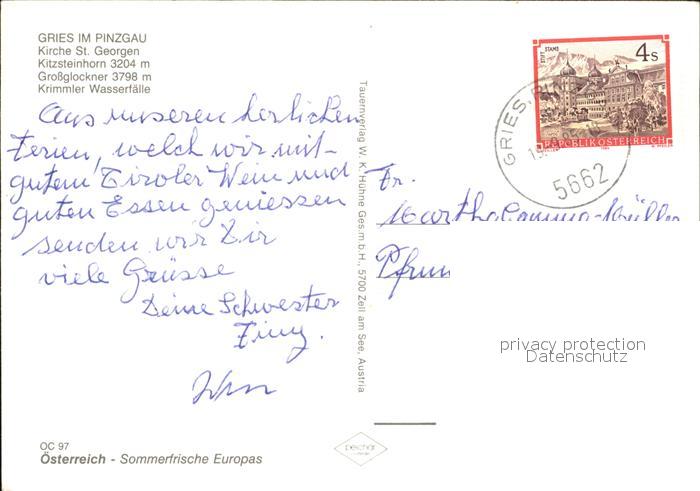 GRIES IM PINZGAU
Kirche St. Georgen
Kitzsteinhorn 3204 m
Großglockner 3798 m
Krimmler Wasserfälle
Aus unseren herlichen
Ferien, welch wir mit-
gutem Tiroler Wein und
guten Essen geniessen
senden wir Dir
viele Grüsse
Deine Schwester
Finy.
OC 97
Österreich - Sommerfrische Europas
Tauernverlag W. K. Hühne Ges.m.b.H., 5700 Zell am See, Austria
STIFT STAMS
4 S
REPUBLIK ÖSTERREICH
GRIES,
5662
Fr.
Martha
Pfrun
privacy protection
Datenschutz